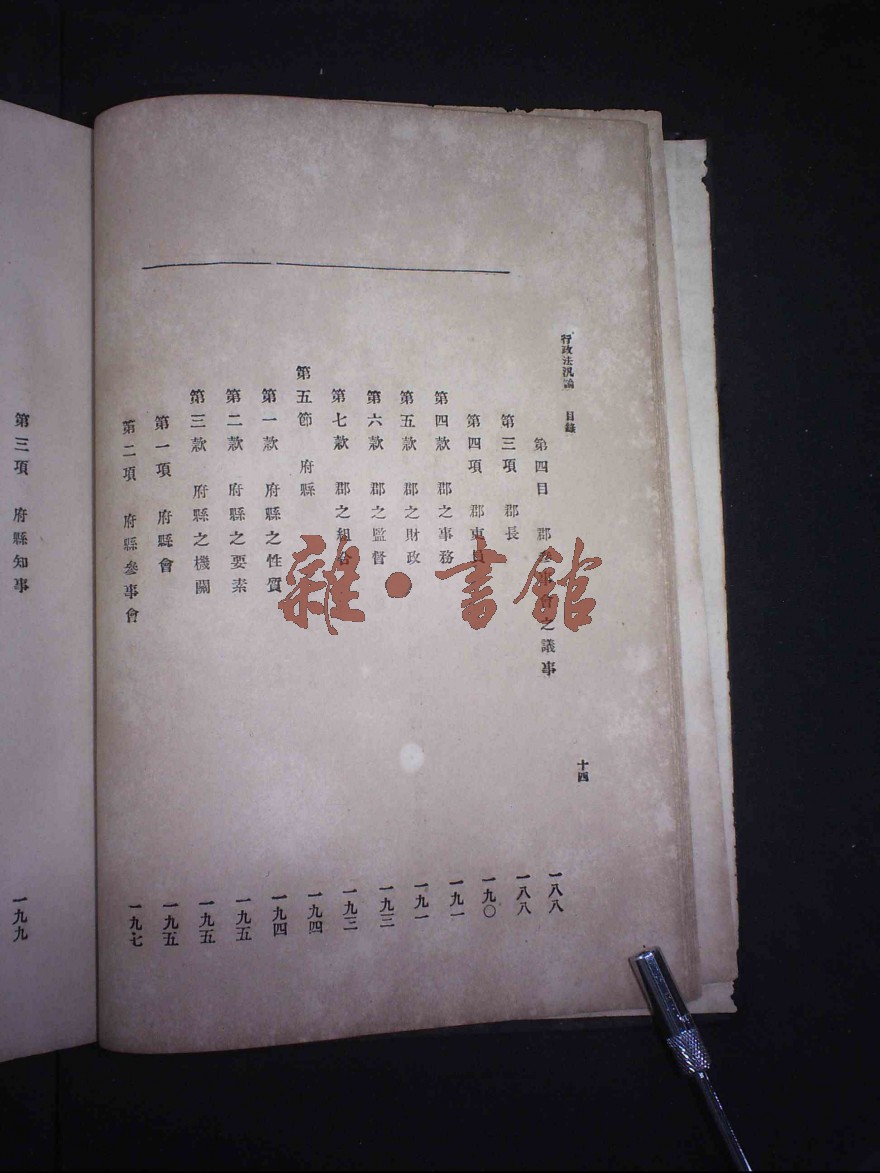 行政法汎論 目錄 十四
第四目 郡參事會之議事 一八八
第三項 郡長 一八八
第四項 郡吏員 一九〇
第四款 郡之事務 一九一
第五款 郡之財政 一九一
第六款 郡之監督 一九三
第七款 郡之組合 一九三
第五節 府縣 一九四
第一款 府縣之性質 一九四
第二款 府縣之要素 一九五
第三款 府縣之機關 一九五
第一項 府縣會 一九五
第二項 府縣參事會 一九七
第三項 府縣知事 一九九
雜·書館